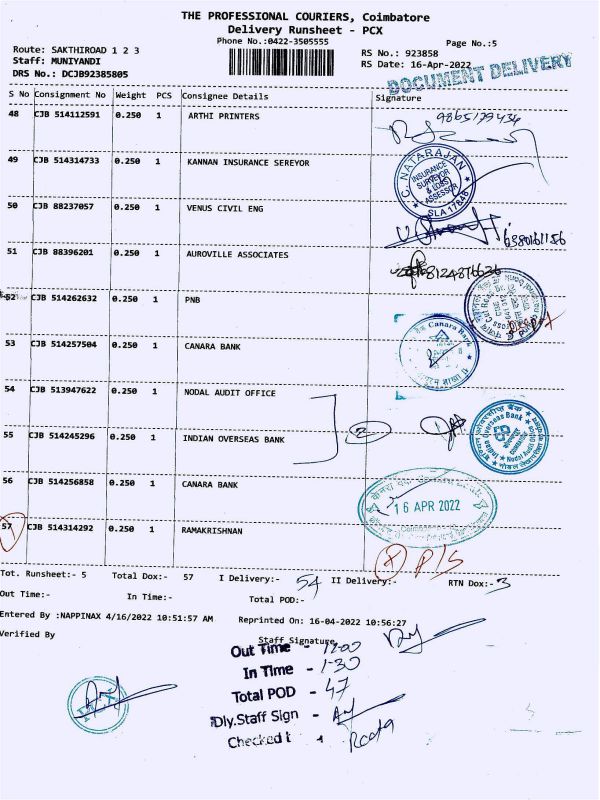 THE PROFESSIONAL COURIERS, Coimbatore
Delivery Runsheet - PCX
Phone No.:0422-3505555
Page No.:5
Route: SAKTHIROAD 1 2 3
RS No.: 923858
Staff: MUNIYANDI
RS Date: 16-Apr-2022
DRS No.: DCJB92385805
DOCUMENT DELIVERY
S No Consignment No Weight PCS Consignee Details Signature
48 CJB 514112591 0.250 1 ARTHI PRINTERS
9865179434
49 CJB 514314733 0.250 1 KANNAN INSURANCE SEREYOR
C. NATARAJAN
INSURANCE
SURVEYOR
& LOSS
ASSESSOR
SLA 17848
50 CJB 88237057 0.250 1 VENUS CIVIL ENG
6380161156
51 CJB 88396201 0.250 1 AUROVILLE ASSOCIATES
8124876636
52 CJB 514262632 0.250 1 PNB
53 CJB 514257504 0.250 1 CANARA BANK
Canara Bank
54 CJB 513947622 0.250 1 NODAL AUDIT OFFICE
2
Indian Overseas Bank
55 CJB 514245296 0.250 1 INDIAN OVERSEAS BANK
56 CJB 514256858 0.250 1 CANARA BANK
16 APR 2022
57 CJB 514314292 0.250 1 RAMAKRISHNAN
P/S
Tot. Runsheet:- 5 Total Dox:- 57 I Delivery:- 54 II Delivery:- RTN Dox:- 3
Out Time:- In Time:- Total POD:-
Entered By :NAPPINAX 4/16/2022 10:51:57 AM Reprinted On: 16-04-2022 10:56:27
Verified By Staff Signature
Out Time -
In Time - 1-30
Total POD - 47
Dly.Staff Sign -
Checked